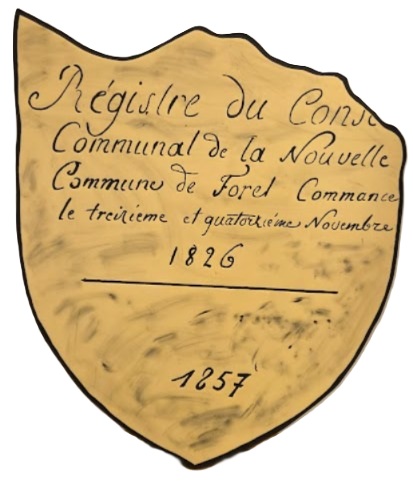 Régistre du Conse
Communal de la Nouvelle
Commune de Forel Commance
le treizieme et quatorzième Novembre
1826
1857